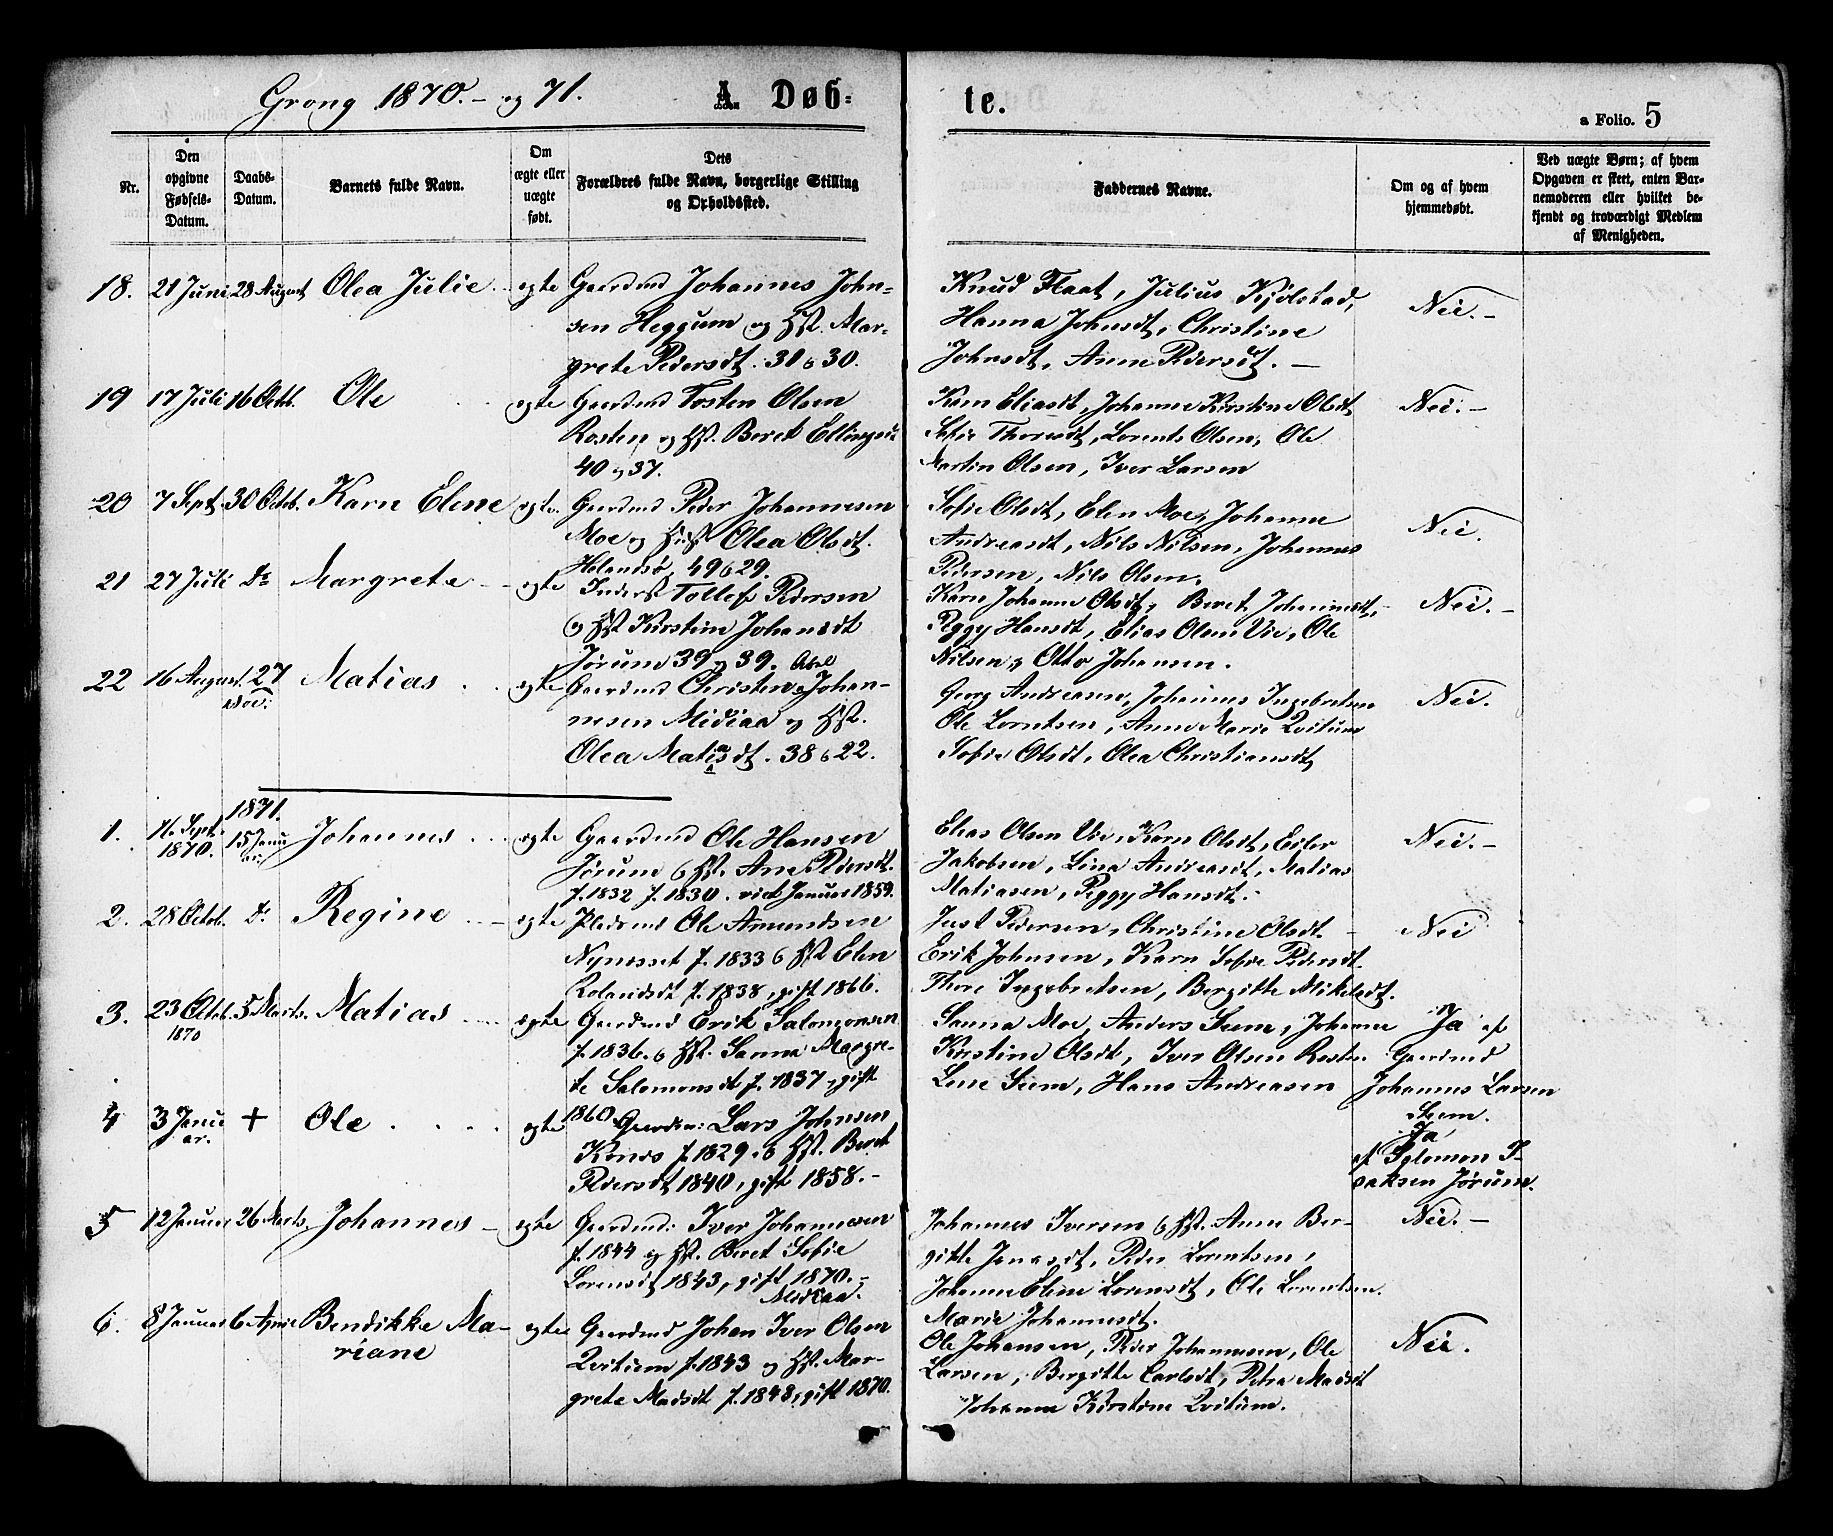 Grong 1870. - og 71.
A Døb-
te.
a Folio. 5
Nr.
Den opgivne Fødsels-Datum.
Daabs-Datum.
Barnets fulde Navn.
Om ægte eller uægte født.
Dets Forældres fulde Navn, borgerlige Stilling og Opholdssted.
Faddernes Navne.
Om og af hvem hjemmedøbt.
Ved uægte Børn; af hvem Opgaven er skeet, enten Barnemoderen eller hvilket bekjendt og troværdigt Medlem af Menigheden.
18. 21 Juni 28 August Olea Julie egte Gaardmd Johannes John-
sen Heggum og Hst. Mar-
grete Pedersdt. 30 & 30.
Knud Flaat, Julius Kjølstad,
Hanna Johnsdt, Christine
Johnsdt, Anne Pedersdt. -
Nei. -
19 17 Juli 16 Octb. Ole egte Gaardmd Tosten Olsen
Rosten og Hst. Beret Ellingsdt
40 og 37.
Karn Eliasdt, Johanne Kirstine Olsdt
Sofie Thoresdt, Lorents Olsen, Ole
Martin Olsen, Iver Larsen
Nei. -
20 7 Sept. 30 Octob. Karn Elene egte. Gaardmd Peder Johannesen
Moe og Hust Olea Olsdt.
49 & 29.
Sofie Olsdt, Elen Moe, Johanne
Andreasdt, Nils Nilsen, Johannes
Pedersen, Nils Olsen.
Nei.
21 27 Juli Do Margrete - egte Inderst Tollef Pedersen
& Hst Kirstine Johansdt
Jørum 39 og 39.
Karn Johanne Olsdt, Beret Johannesdt,
Peggy Hansdt, Elias Olsen Vie, Ole
Nilsen, Otto Johansen.
Nei. -
22 16 August. 27 Nov. Matias egte Gaardmd Christen Johan-
nesen Midiaa og Hst.
Olea Matiasdt. 38 & 22.
Georg Andreasen, Johannes Ingebretsen
Ole Lorntsen, Anne Marie Qvitum
Sofie Olsdt, Olea Christiansdt
Nei.
1871.
1. 11. Sept. 1870. 15 Janu ar. Johannes egte Gaardmd Ole Hansen
Jørum & Hst. Ane Pedersdt.
f. 1832 f. 1830. viet Januar 1859.
Elias Olsen Vie, Karn Olsdt, Eiler
Jakobsen, Lina Andreasdt, Matias
Matiasen, Peggy Hansdt.
Nei. -
2. 28 Octob. Do Regine egte Pladsmd Ole Amundsen
Nynesset f. 1833 & Hst Elen
Rolandsdt f. 1838, gift 1866.
Just Pedersen, Christine Olsdt.
Erik Johnsen, Karn Sofie Pedersdt
Thore Ingebretsen, Bergitte Mikelsdt.
Nei
3. 23 Octob. 1870 5 Marts. Matias egte Gaardmd Erik Salomonsen
f. 1836. & Hst. Sanna Margre-
te Salomonsdt f. 1837, gift
1860.
Sanna Moe, Anders Seem, Johanne
Kirstine Olsdt, Iver Olsen Rosten
Lene Seem, Hans Andreasen
Ja af
Gaardmd
Johannes Larsen
Seem.
4 3 Janu ar. + Ole egte Gaardm: Lars Johnsen
f. 1829. & Hst. Beret
Pedersdt 1840, gift 1858. -
Ja
af Salomon I-
saksen Jørum.
5 12 Januar 26 Marts. Johannes - egte Gaardmd: Iver Johannesen
f. 1844 og Hst. Beret Sofie
Lorensdt 1843, gift 1870. -
Midiaa.
Johannes Iversen & Hst. Anne Ber-
gitte Jonasdt, Peder Lorentsen,
Johanne Eline Lorensdt, Ole Lorentsen.
Marie Johannesdt.
Nei. -
6. 8 Januar 6 April Bendikke Ma-
riane egte Gaardmd Johan Iver Olsen
Qvitum f. 1843 og Hst. Mar-
grete Madsdt f. 1848, gift 1870.
Ole Johansen, Peder Johannesen, Ole
Larsen, Bergitte Carlsdt, Petra Madsdt
Johanna Kirstine Qvitum.
Nei.